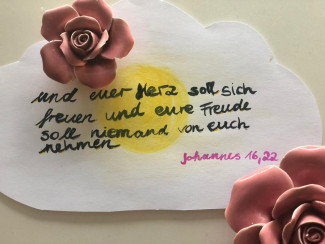 und euer Herz soll sich
freuen und eure Freude
soll niemand von euch
nehmen
Johannes 16,22